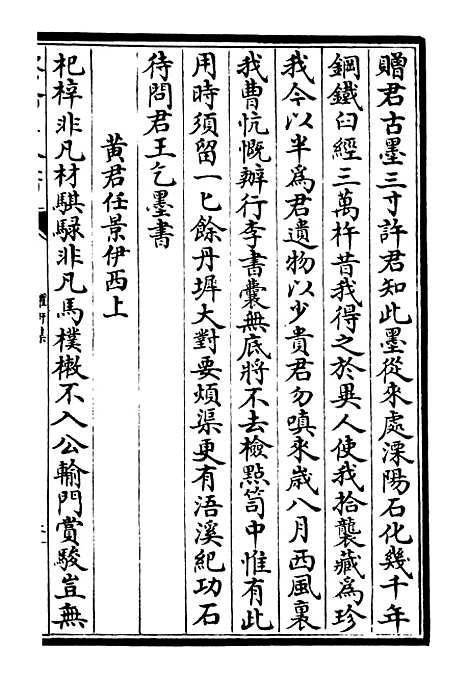 贈君古墨三寸許君知此墨從來處溧陽石化幾千年
鋼鐵臼經三萬杵昔我得之於異人使我拾襲藏爲珍
我今以半爲君遺物以少貴君勿嗔來歲八月西風裏
我曹忼慨辦行李書囊無底將不去檢點笥中惟有此
用時須留一匕餘丹墀大對要煩渠更有浯溪紀功石
待問君王乞墨書
黃君任景伊西上
杞梓非凡材騏騄非凡馬樸樕不入公輸門賞駿豈無